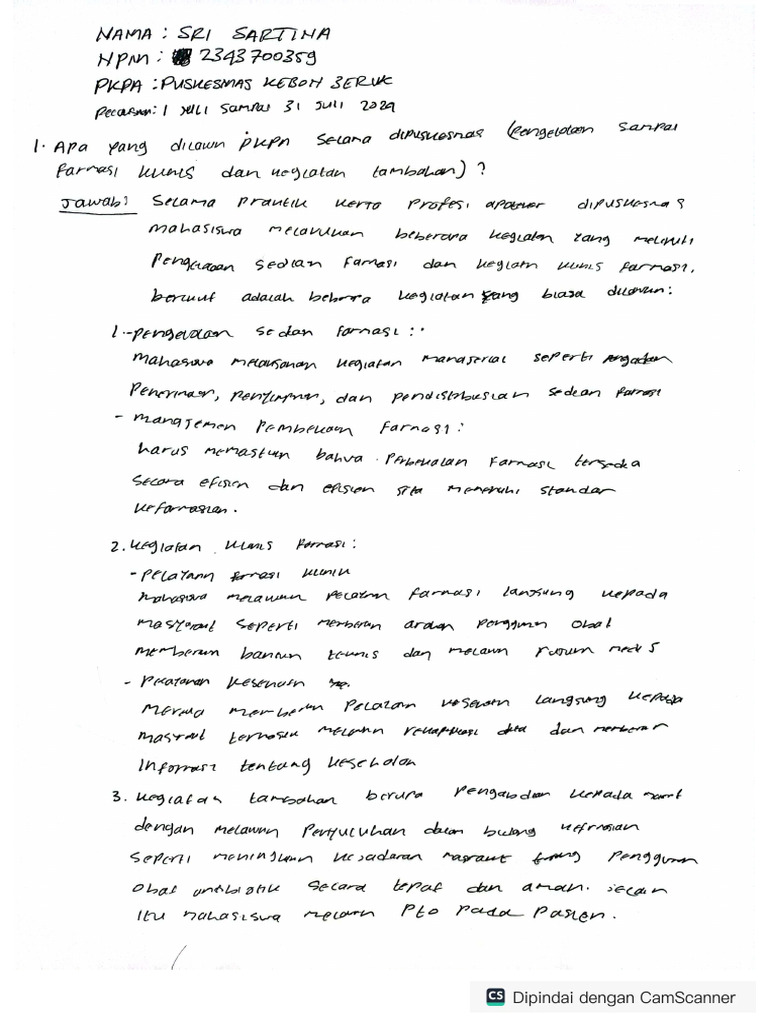 NAMA : SRI SARTINA
NPM : 2343700359
PKPA : PUSKESMAS KEBON JERUK
1 Juli sampai 31 Juli 2024
1. Apa yang dilakukan PKPA selama dipuskesmas (pengelolaan sampai
farmasi klinis dan kegiatan tambahan) ?
Jawab : Selama praktik kerja profesi apoteker dipuskesmas
mahasiswa melakukan beberapa kegiatan yang meliputi
Pengelolaan sedian farmasi dan kegiatan klinis farmasi.
berikut adalah beberapa kegiatan yang biasa dilakukan:
1.- pengelolaan sedian farmasi :
mahasiswa melaksanakan kegiatan manajerial seperti pengadaan
Penerimaan, penyimpanan, dan pendistribusian sedian farmasi
- manajemen Pembekalan farmasi :
harus memastikan bahwa perbekalan farmasi tersedia
secara efisien dan efisien serta memenuhi standar
kefarmasian.
2. kegiatan klinis farmasi :
- pelayanan farmasi klinik
mahasiswa melakukan pelayanan farmasi langsung kepada
masyarakat seperti memberikan arahan penggunaan obat
memberikan bantuan teknis dan melakukan rekam medis
- pelayanan kesehatan
Mereka memberikan pelayanan kesehatan langsung kepada
masyarakat termasuk melakukan rekapitulasi data dan memberikan
informasi tentang kesehatan
3. kegiatan tambahan berupa pengabdian kepada masyarakat
dengan melakukan penyuluhan dalam bidang kefarmasian
seperti meningkatkan kesadaran masyarakat tentang penggunaan
obat antibiotik secara tepat dan aman. selain
itu mahasiswa melakukan PTO pada pasien.
CS Dipindai dengan CamScanner